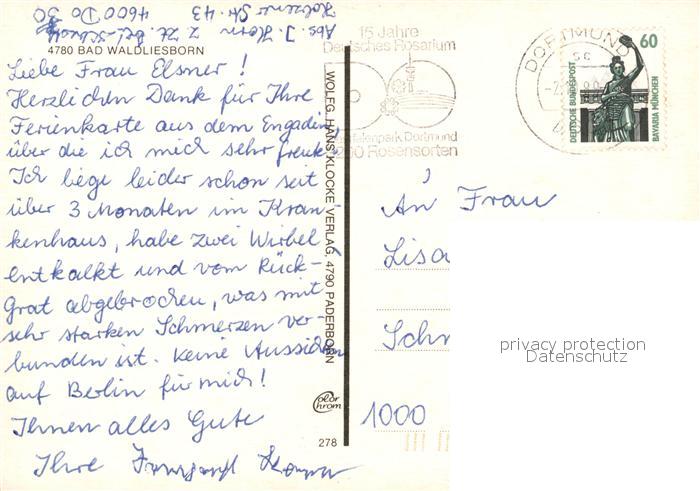 Abs. J. Horn z. Zt. bei
Holzener Str. 43
4600 Do 30
4780 BAD WALDLIESBORN
Liebe Frau Elsner!
Herzlichen Dank für Ihre
Ferienkarte aus dem Engadin,
über die ich mich sehr freute.
Ich liege leider schon seit
über 3 Monaten im Kran-
kenhaus, habe zwei Wirbel
entkalkt und vom Rück-
Grat abgebrochen, was mit
sehr starken Schmerzen ver-
bunden ist. Keine Aussichten
auf Berlin für mich!
Ihnen alles Gute
Ihre
WOLFG. HANS KLOCKE VERLAG, 4790 PADERBORN
Color
Chrom
278
15 Jahre
Deutsches Rosarium
Westfalenpark Dortmund
Rosensorten
DORTMUND
sc
60
DEUTSCHE BUNDESPOST
BAVARIA MÜNCHEN
An Frau
Lisa
Schn
1000
privacy protection
Datenschutz